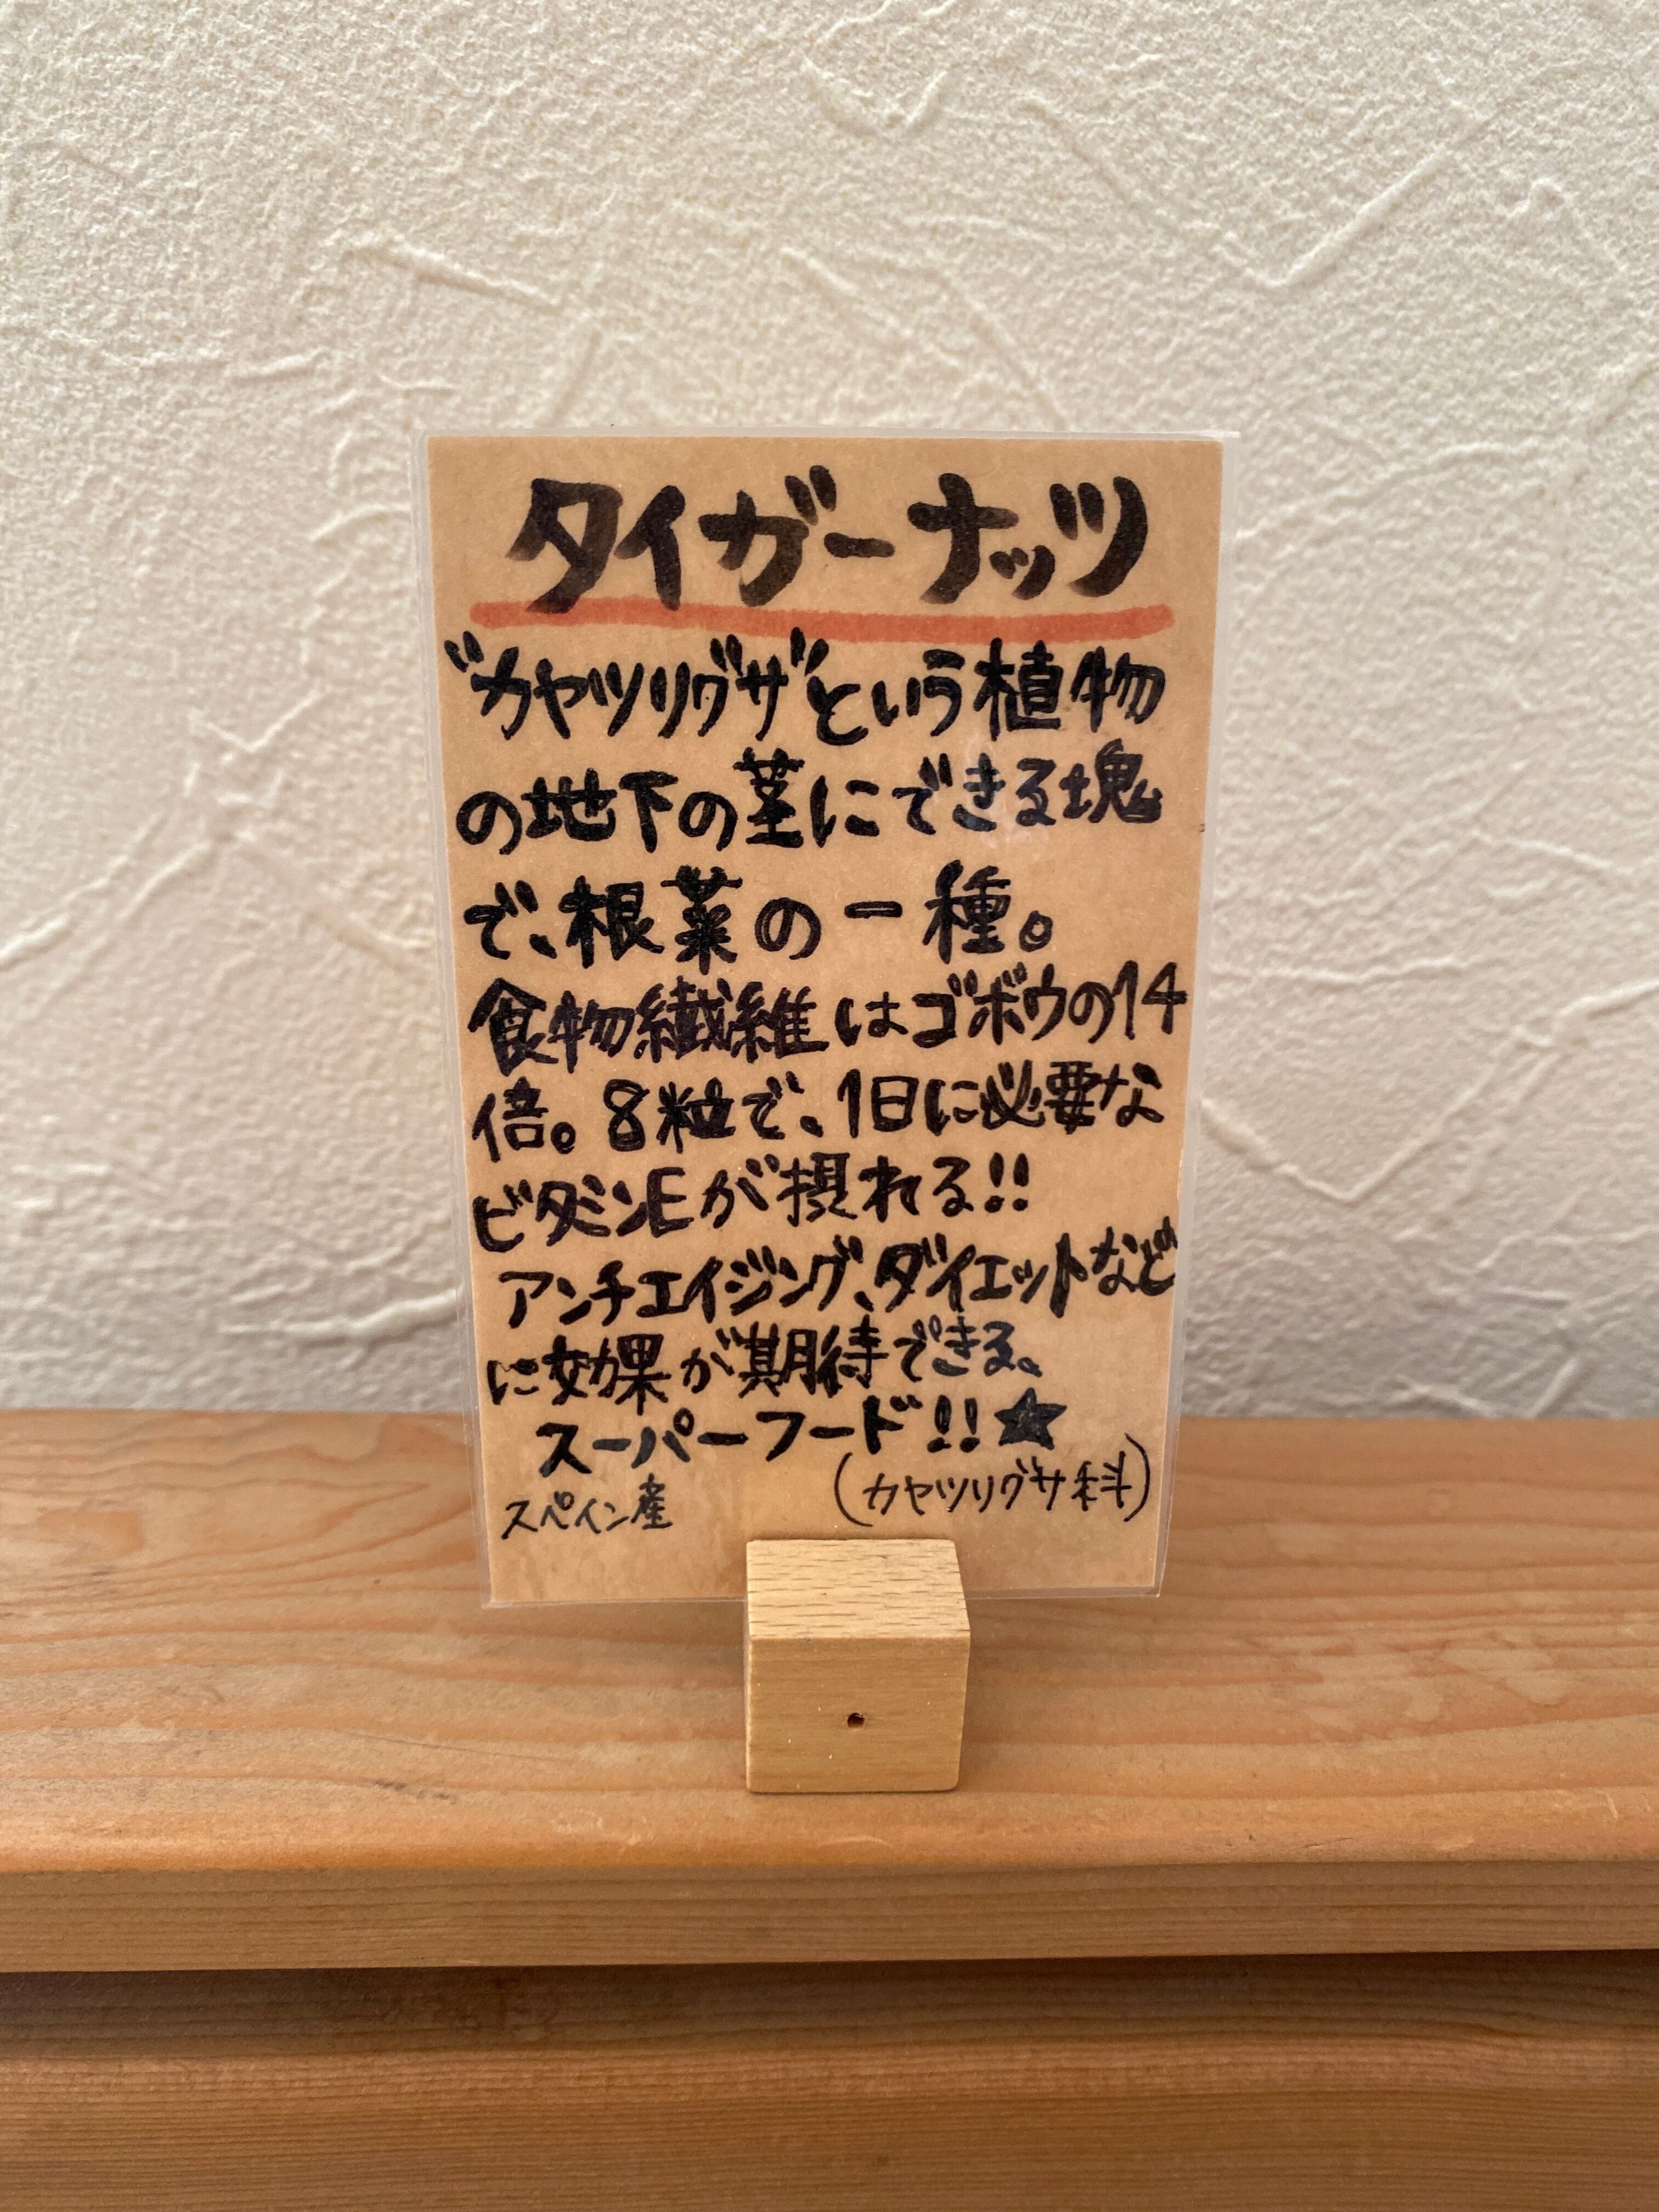 タイガーナッツ
"カヤツリグサ"という植物
の地下の茎にできる塊
で、根菜の一種。
食物繊維はゴボウの14
倍。8粒で、1日に必要な
ビタミンEが摂れる!!
アンチエイジング、ダイエットなど
に効果が期待できる、
スーパーフード!!★
(カヤツリグサ科)
スペイン産